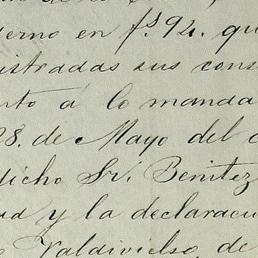 erno en fs. 94. qu
istradas sus cons
nto á lo manda
28. de Mayo del c
dicho Sr. Benitez
ud y la declaracu
Valdivielso, de